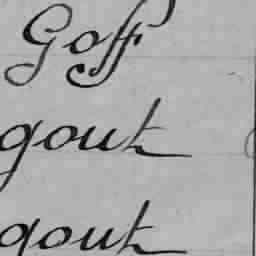 Goff
gout
gout